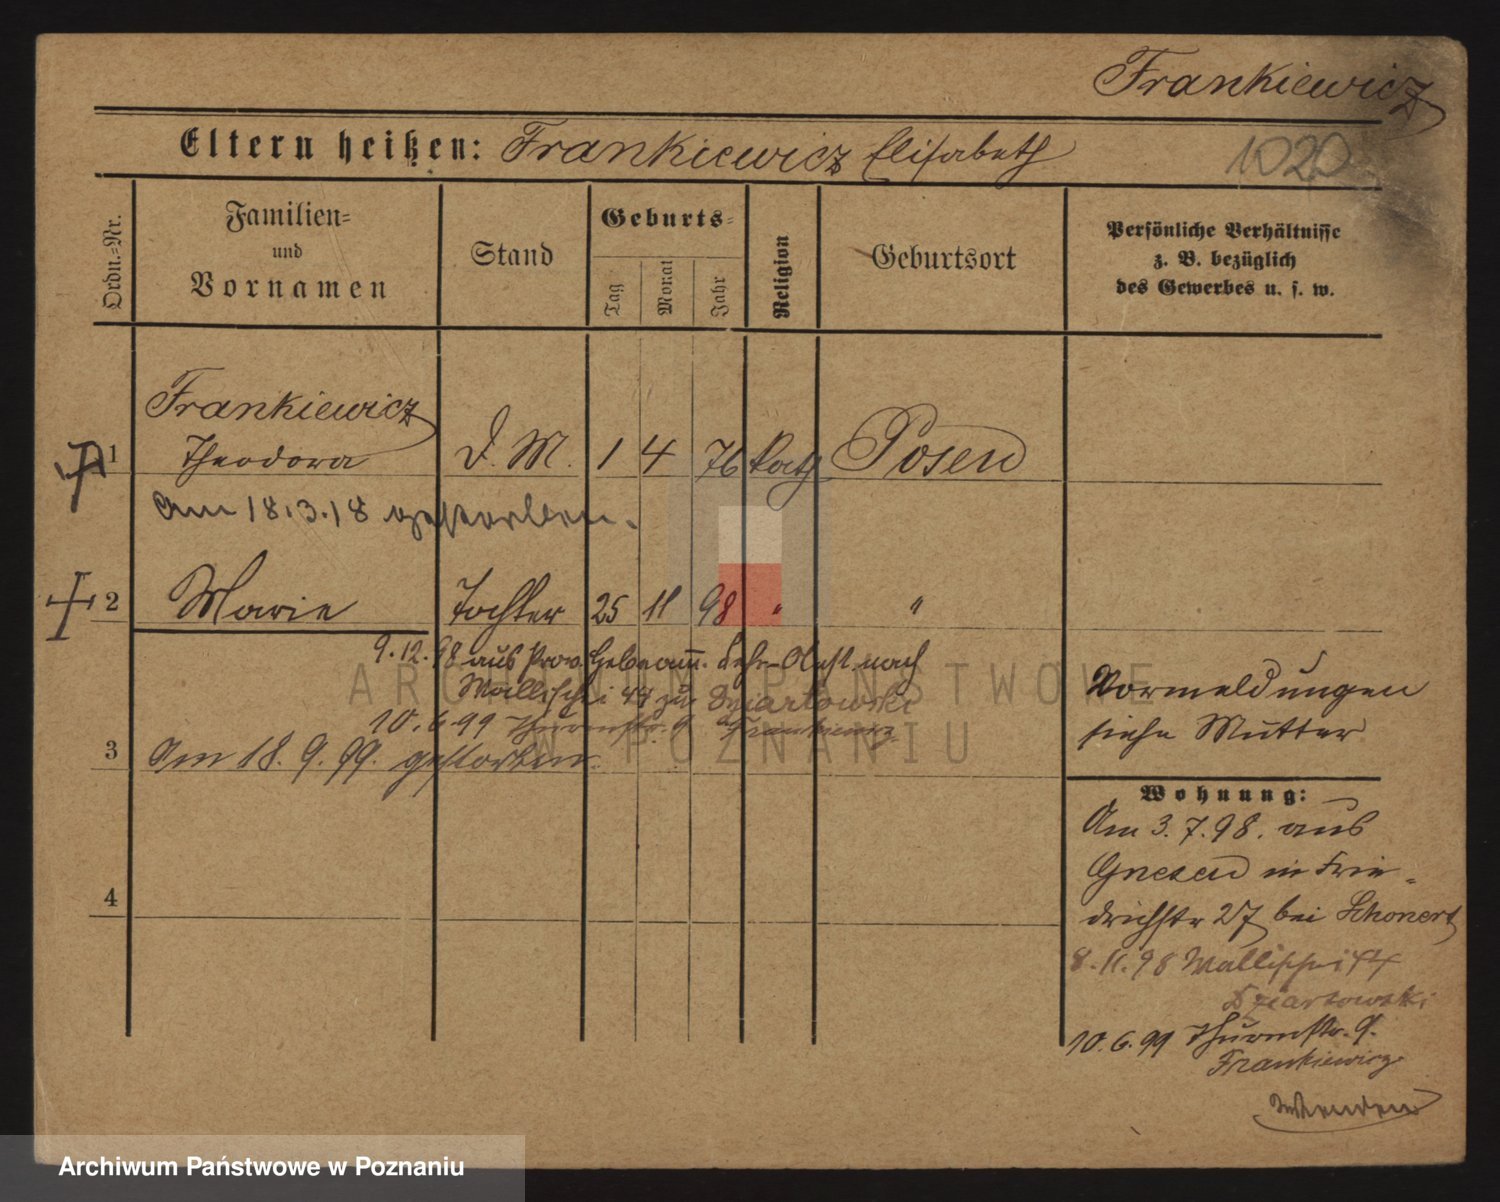 Frankiewicz
1020
Eltern heißen: Frankiewicz Elisabeth
Ordn.-Nr.
Familien-
und
Vornamen
Stand
Geburts-
Tag
Monat
Jahr
Religion
Geburtsort
Persönliche Verhältnisse
z. B. bezüglich
des Gewerbes u. s. w.
Frankiewicz
1 Theodora D. M. 1 4 76 Kath Posen
Am 18.3.18 gestorben.
2 Marie Tochter 25 11 98 " "
9.12.98 aus Prov. Hebeam. Lehr-Anst. nach
Wallischei 44 zu Dziartowski
10.6.99 Thurmstr. 9 Frankiewicz
3 Am 18.9.99. gestorben.
4
Vormeldungen
siehe Mutter
Wohnung:
Am 3.7.98. aus
Gnesen in Frie-
drichstr 27 bei Schonert
8.11.98 Wallischei 44
Dziartowski
10.6.99 Thurmstr. 9.
Frankiewicz
Wenden
ARCHIWUM PAŃSTWOWE
W POZNANIU
Archiwum Państwowe w Poznaniu